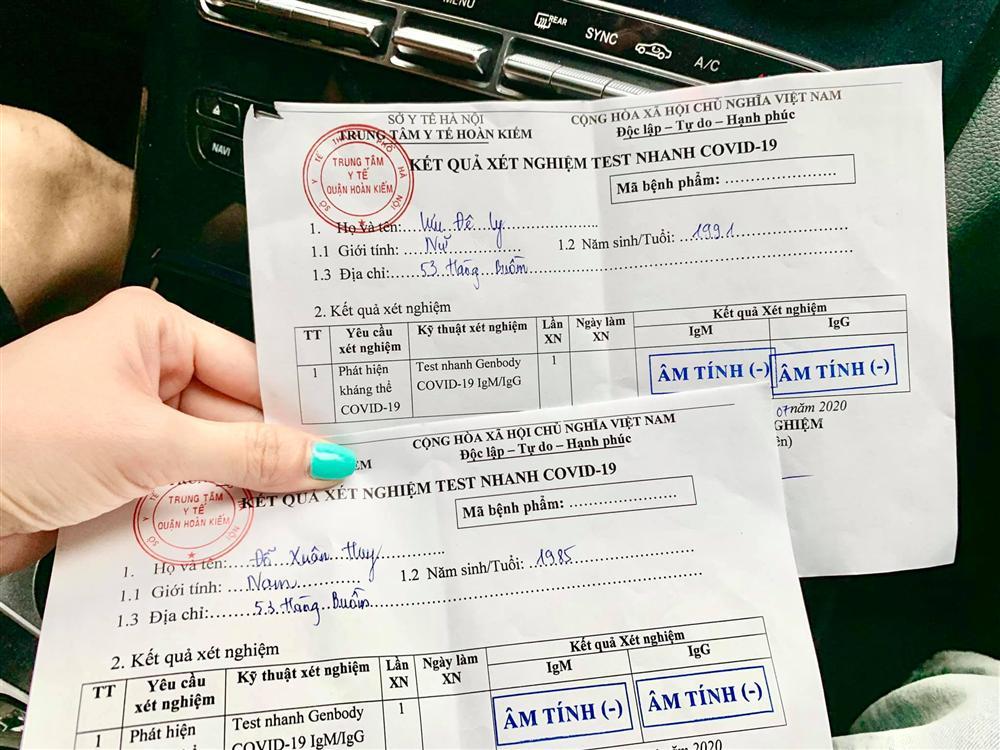 MENU
REAR
SYNC
A/C
NAVI
SỞ Y TẾ HÀ NỘI
TRUNG TÂM Y TẾ HOÀN KIẾM
CỘNG HÒA XÃ HỘI CHỦ NGHĨA VIỆT NAM
Độc lập – Tự do – Hạnh phúc
TRUNG TÂM
Y TẾ
QUẬN HOÀN KIẾM
KẾT QUẢ XÉT NGHIỆM TEST NHANH COVID-19
Mã bệnh phẩm: ......................
1. Họ và tên: Lưu Đê Ly
1.1 Giới tính: Nữ 1.2 Năm sinh/Tuổi: 1991
1.3 Địa chỉ: 53 Hàng Buồm
2. Kết quả xét nghiệm
TT Yêu cầu xét nghiệm Kỹ thuật xét nghiệm Lần XN Ngày làm XN Kết quả Xét nghiệm
IgM IgG
1 Phát hiện kháng thể COVID-19 Test nhanh Genbody COVID-19 IgM/IgG 1 ÂM TÍNH (-) ÂM TÍNH (-)
07 năm 2020
GHIỆM
ên)
CỘNG HÒA XÃ HỘI CHỦ NGHĨA VIỆT NAM
Độc lập – Tự do – Hạnh phúc
ẾM
TRUNG TÂM
Y TẾ
QUẬN HOÀN KIẾM
KẾT QUẢ XÉT NGHIỆM TEST NHANH COVID-19
Mã bệnh phẩm: ......................
1. Họ và tên: Đỗ Xuân Huy
1.1 Giới tính: Nam 1.2 Năm sinh/Tuổi: 1985
1.3 Địa chỉ: 53 Hàng Buồm
2. Kết quả xét nghiệm
TT Yêu cầu xét nghiệm Kỹ thuật xét nghiệm Lần XN Ngày làm XN Kết quả Xét nghiệm
IgM IgG
1 Phát hiện Test nhanh Genbody COVID-19 IgM/IgG 1 ÂM TÍNH (-) ÂM TÍNH (-)
2020